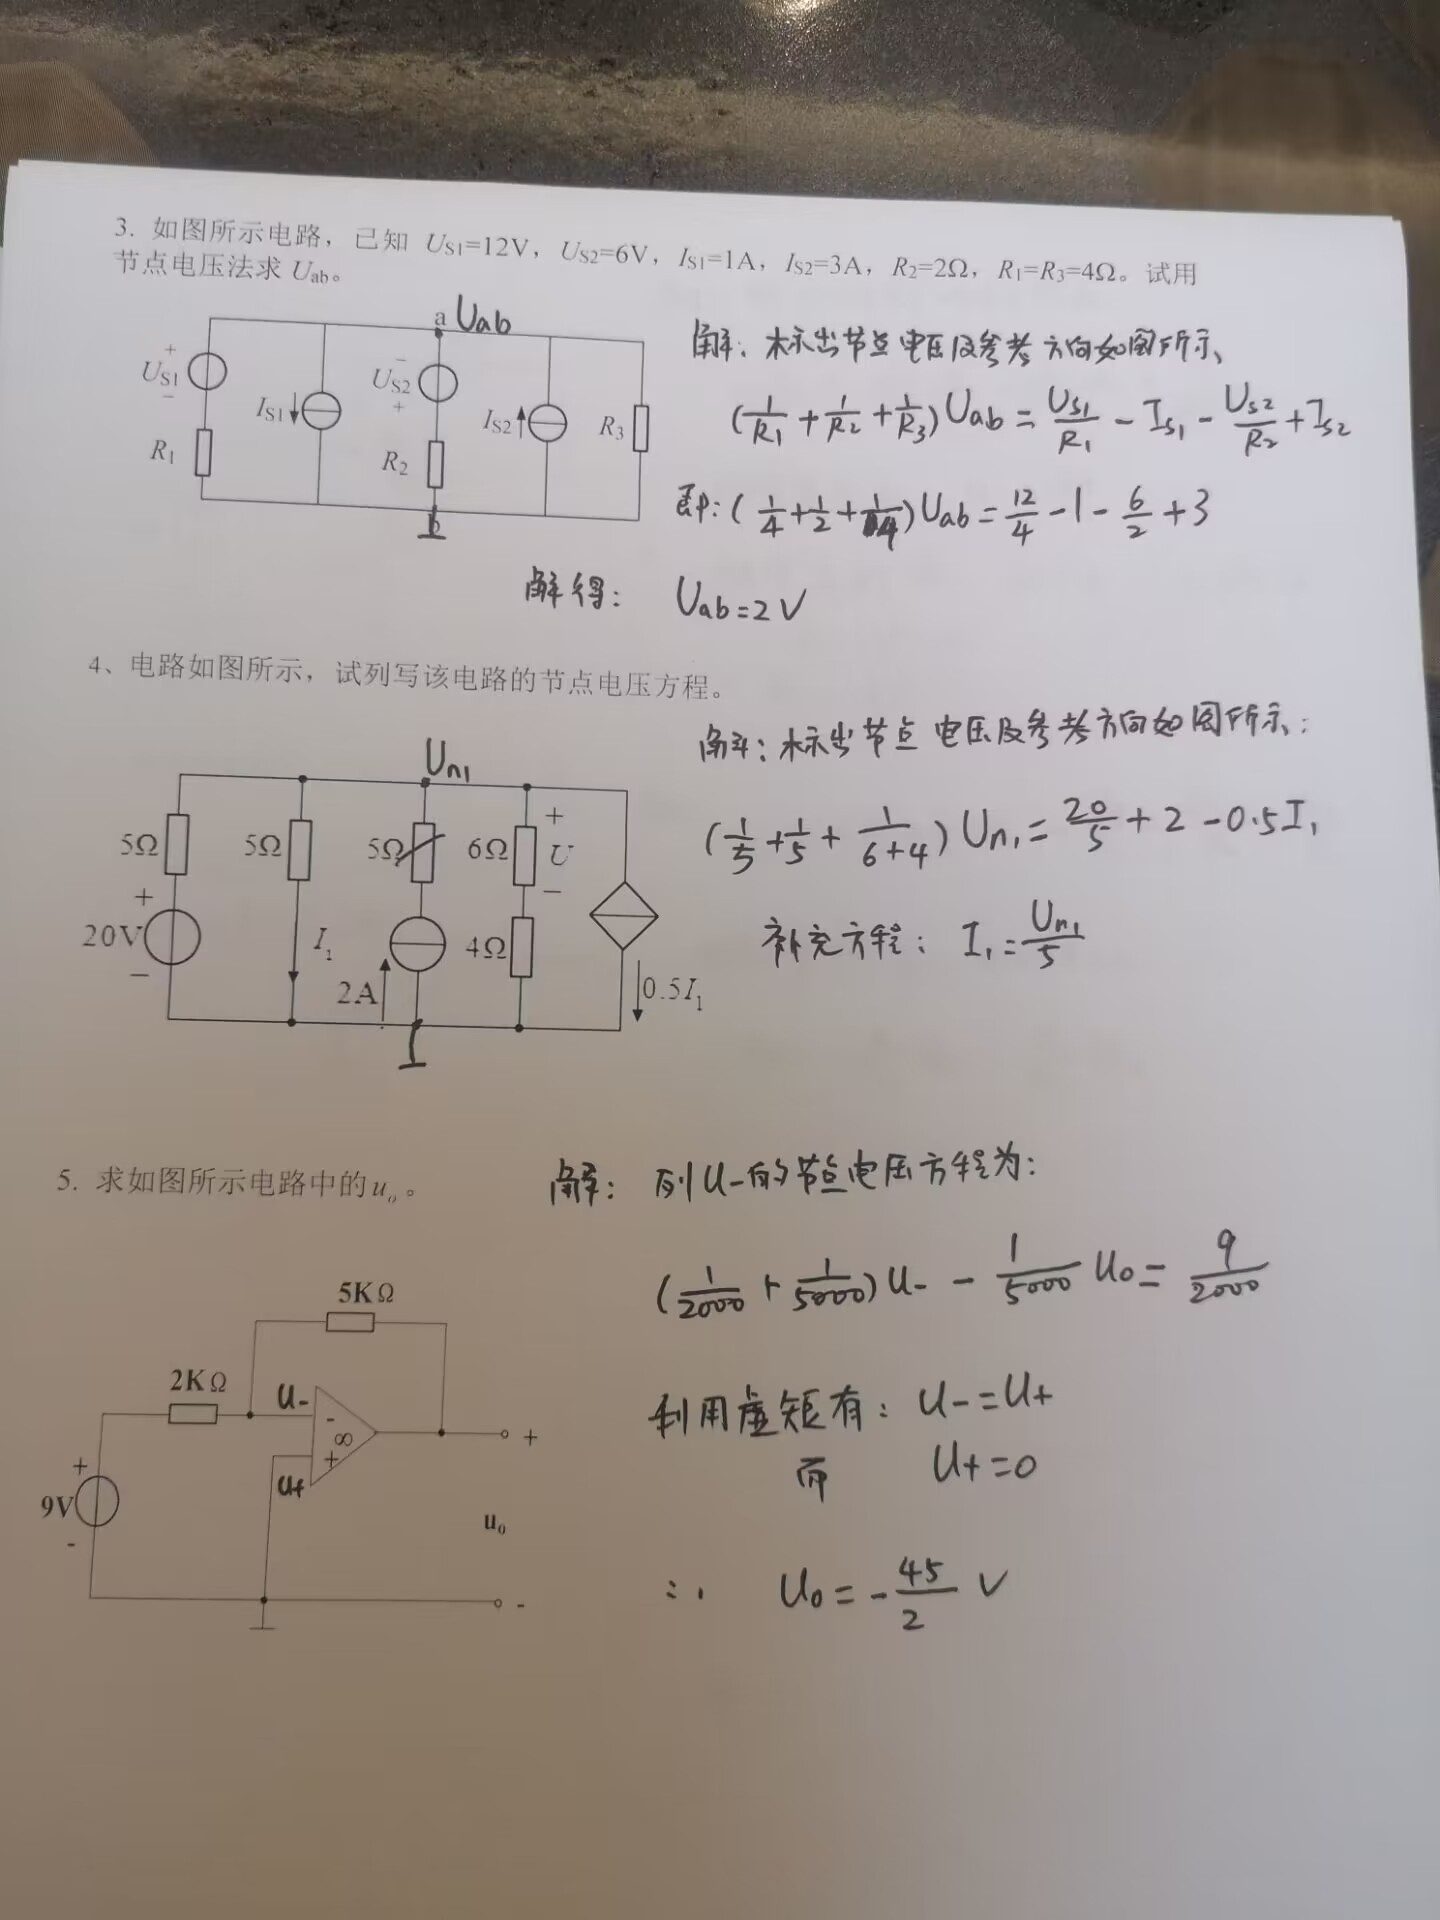 3. 如图所示电路，已知 US1=12V，US2=6V，IS1=1A，IS2=3A，R2=2Ω，R1=R3=4Ω。试用
节点电压法求 Uab。
a Uab
+
US1
−
R1
IS1
−
US2
+
R2
IS2
R3
b
解：标出节点电压及参考方向如图所示
(1/R1 + 1/R2 + 1/R3) Uab = US1/R1 − IS1 − US2/R2 + IS2
即：(1/4 + 1/2 + 1/4) Uab = 12/4 − 1 − 6/2 + 3
解得： Uab = 2V
4、电路如图所示，试列写该电路的节点电压方程。
Un1
5Ω
+
20V
−
5Ω
I1
5Ω
2A
6Ω
+
U
−
4Ω
0.5I1
解：标出节点电压及参考方向如图所示：
(1/5 + 1/5 + 1/(6+4)) Un1 = 20/5 + 2 − 0.5I1
补充方程： I1 = Un1/5
5. 求如图所示电路中的uo。
5KΩ
2KΩ
U-
-
∞
+
U+
+
9V
-
+
uo
-
解： 列U-的节点电压方程为：
(1/2000 + 1/5000) U- − 1/5000 Uo = 9/2000
利用虚短有： U- = U+
而 U+ = 0
∴ Uo = −45/2 V